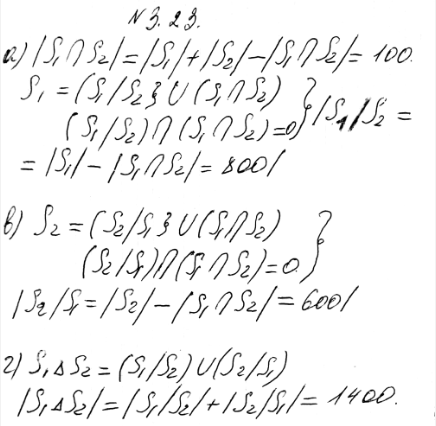 N 3.23.
а) |S₁∩S₂|=|S₁|+|S₂|-|S₁∩S₂|=100.
S₁ = (S₁/S₂}∪(S₁∩S₂)
(S₁/S₂)∩(S₁∩S₂)=0 } |S₁/S₂ =
= |S₁|-|S₁∩S₂|= 800/
в) S₂ = (S₂/S₁}∪(S₁∩S₂)
(S₂/S₁)∩(S₁∩S₂)=0. }
|S₂/S₁=|S₂|-|S₁∩S₂|= 600/
г) S₁ΔS₂ = (S₁/S₂)∪(S₂/S₁)
|S₁ΔS₂|=|S₁/S₂|+|S₂/S₁|= 1400.